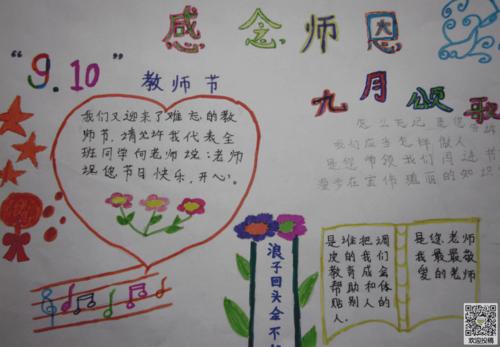 感念师恩
“9.10”
教师节
九月颂歌
我们又迎来了难忘的教
师节,请允许我代表全
班同学向老师说:老师
祝您节日快乐,开心。
怎么忘记 是您
我们应当怎样做人
是您带领我们闯进书
漫步在宏伟瑰丽的知识
浪子回头金不
是谁把调
皮的我们
教育成会
帮助和体
贴别人的
人。
是您,老师
我最最敬
爱的老师
欢迎投稿